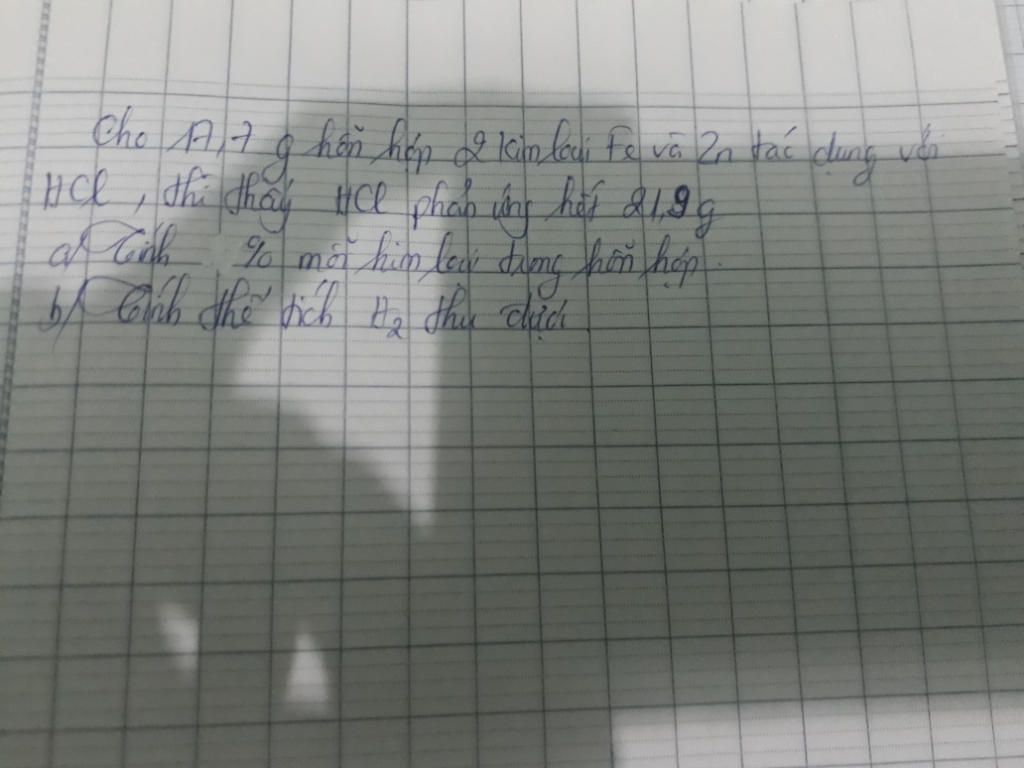 Cho 17,7 g hỗn hợp 2 kim loại Fe và Zn tác dụng với
HCl, thì thấy HCl phản ứng hết 21,9g
a/ Tính % mỗi kim loại trong hỗn hợp.
b/ Tính thể tích H2 thu được